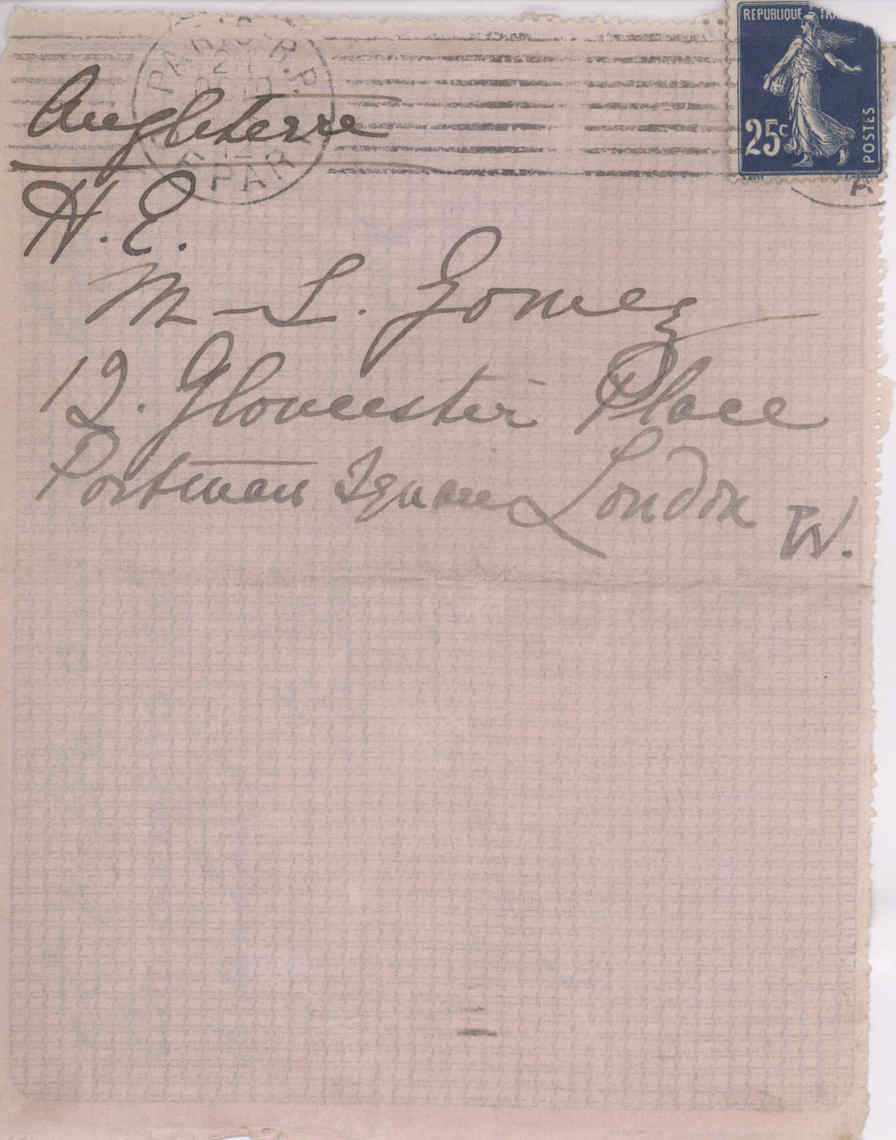 REPUBLIQUE FRA
25c
POSTES
PARIS R.P.
PAR
Angleterre
H. E.
M - L. Gomez
12. Gloucester Place
Portman Square London
W.